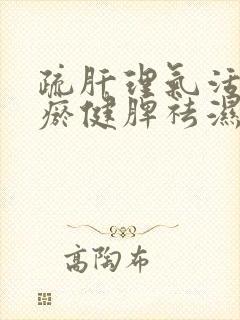 疏肝理氣活
瘀健脾祛濕
高陶布